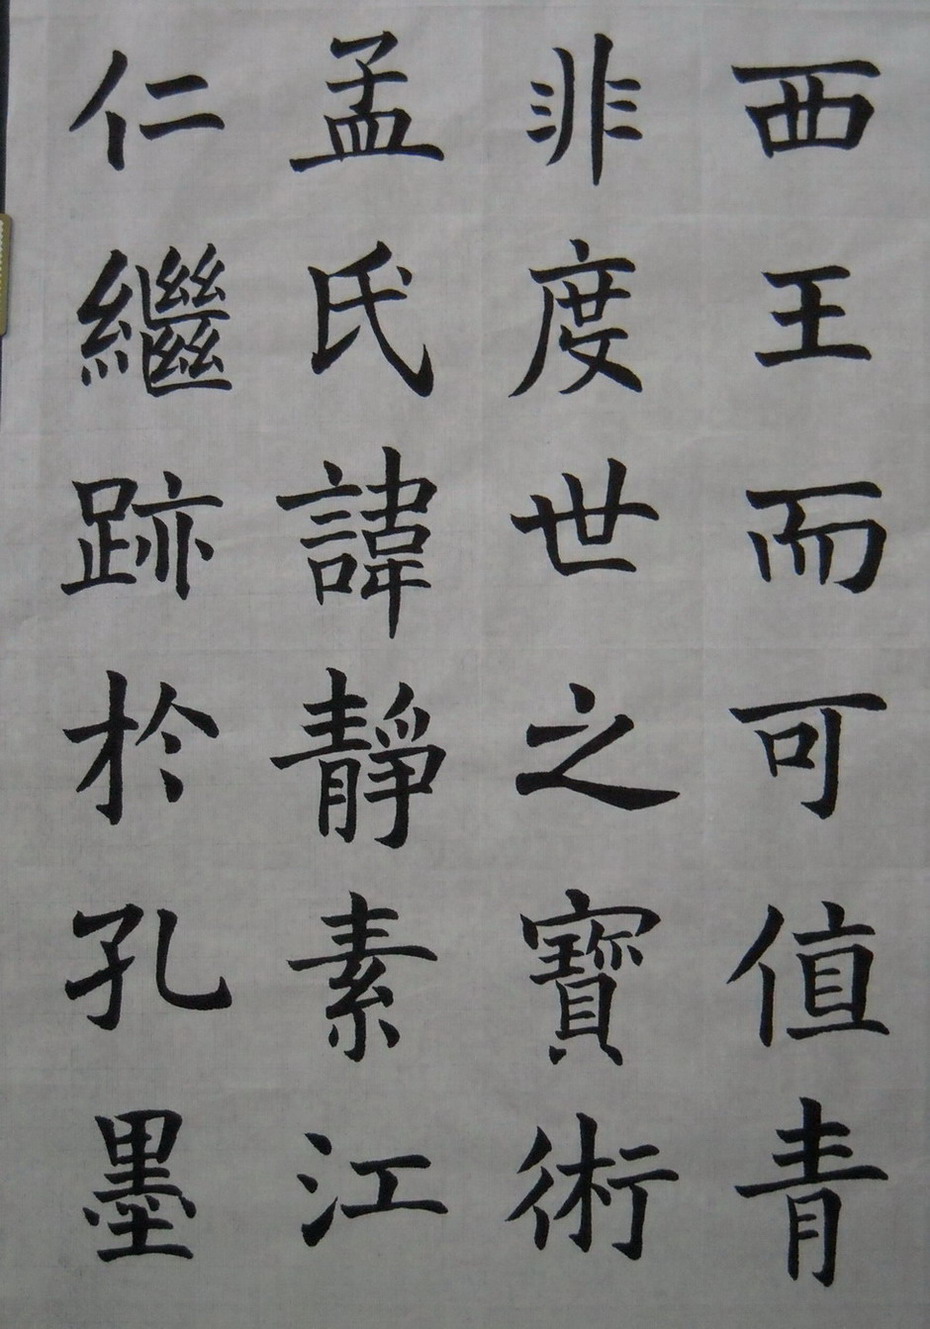 西王而可值青
非度世之寶術
孟氏諱靜素江
仁繼跡於孔墨